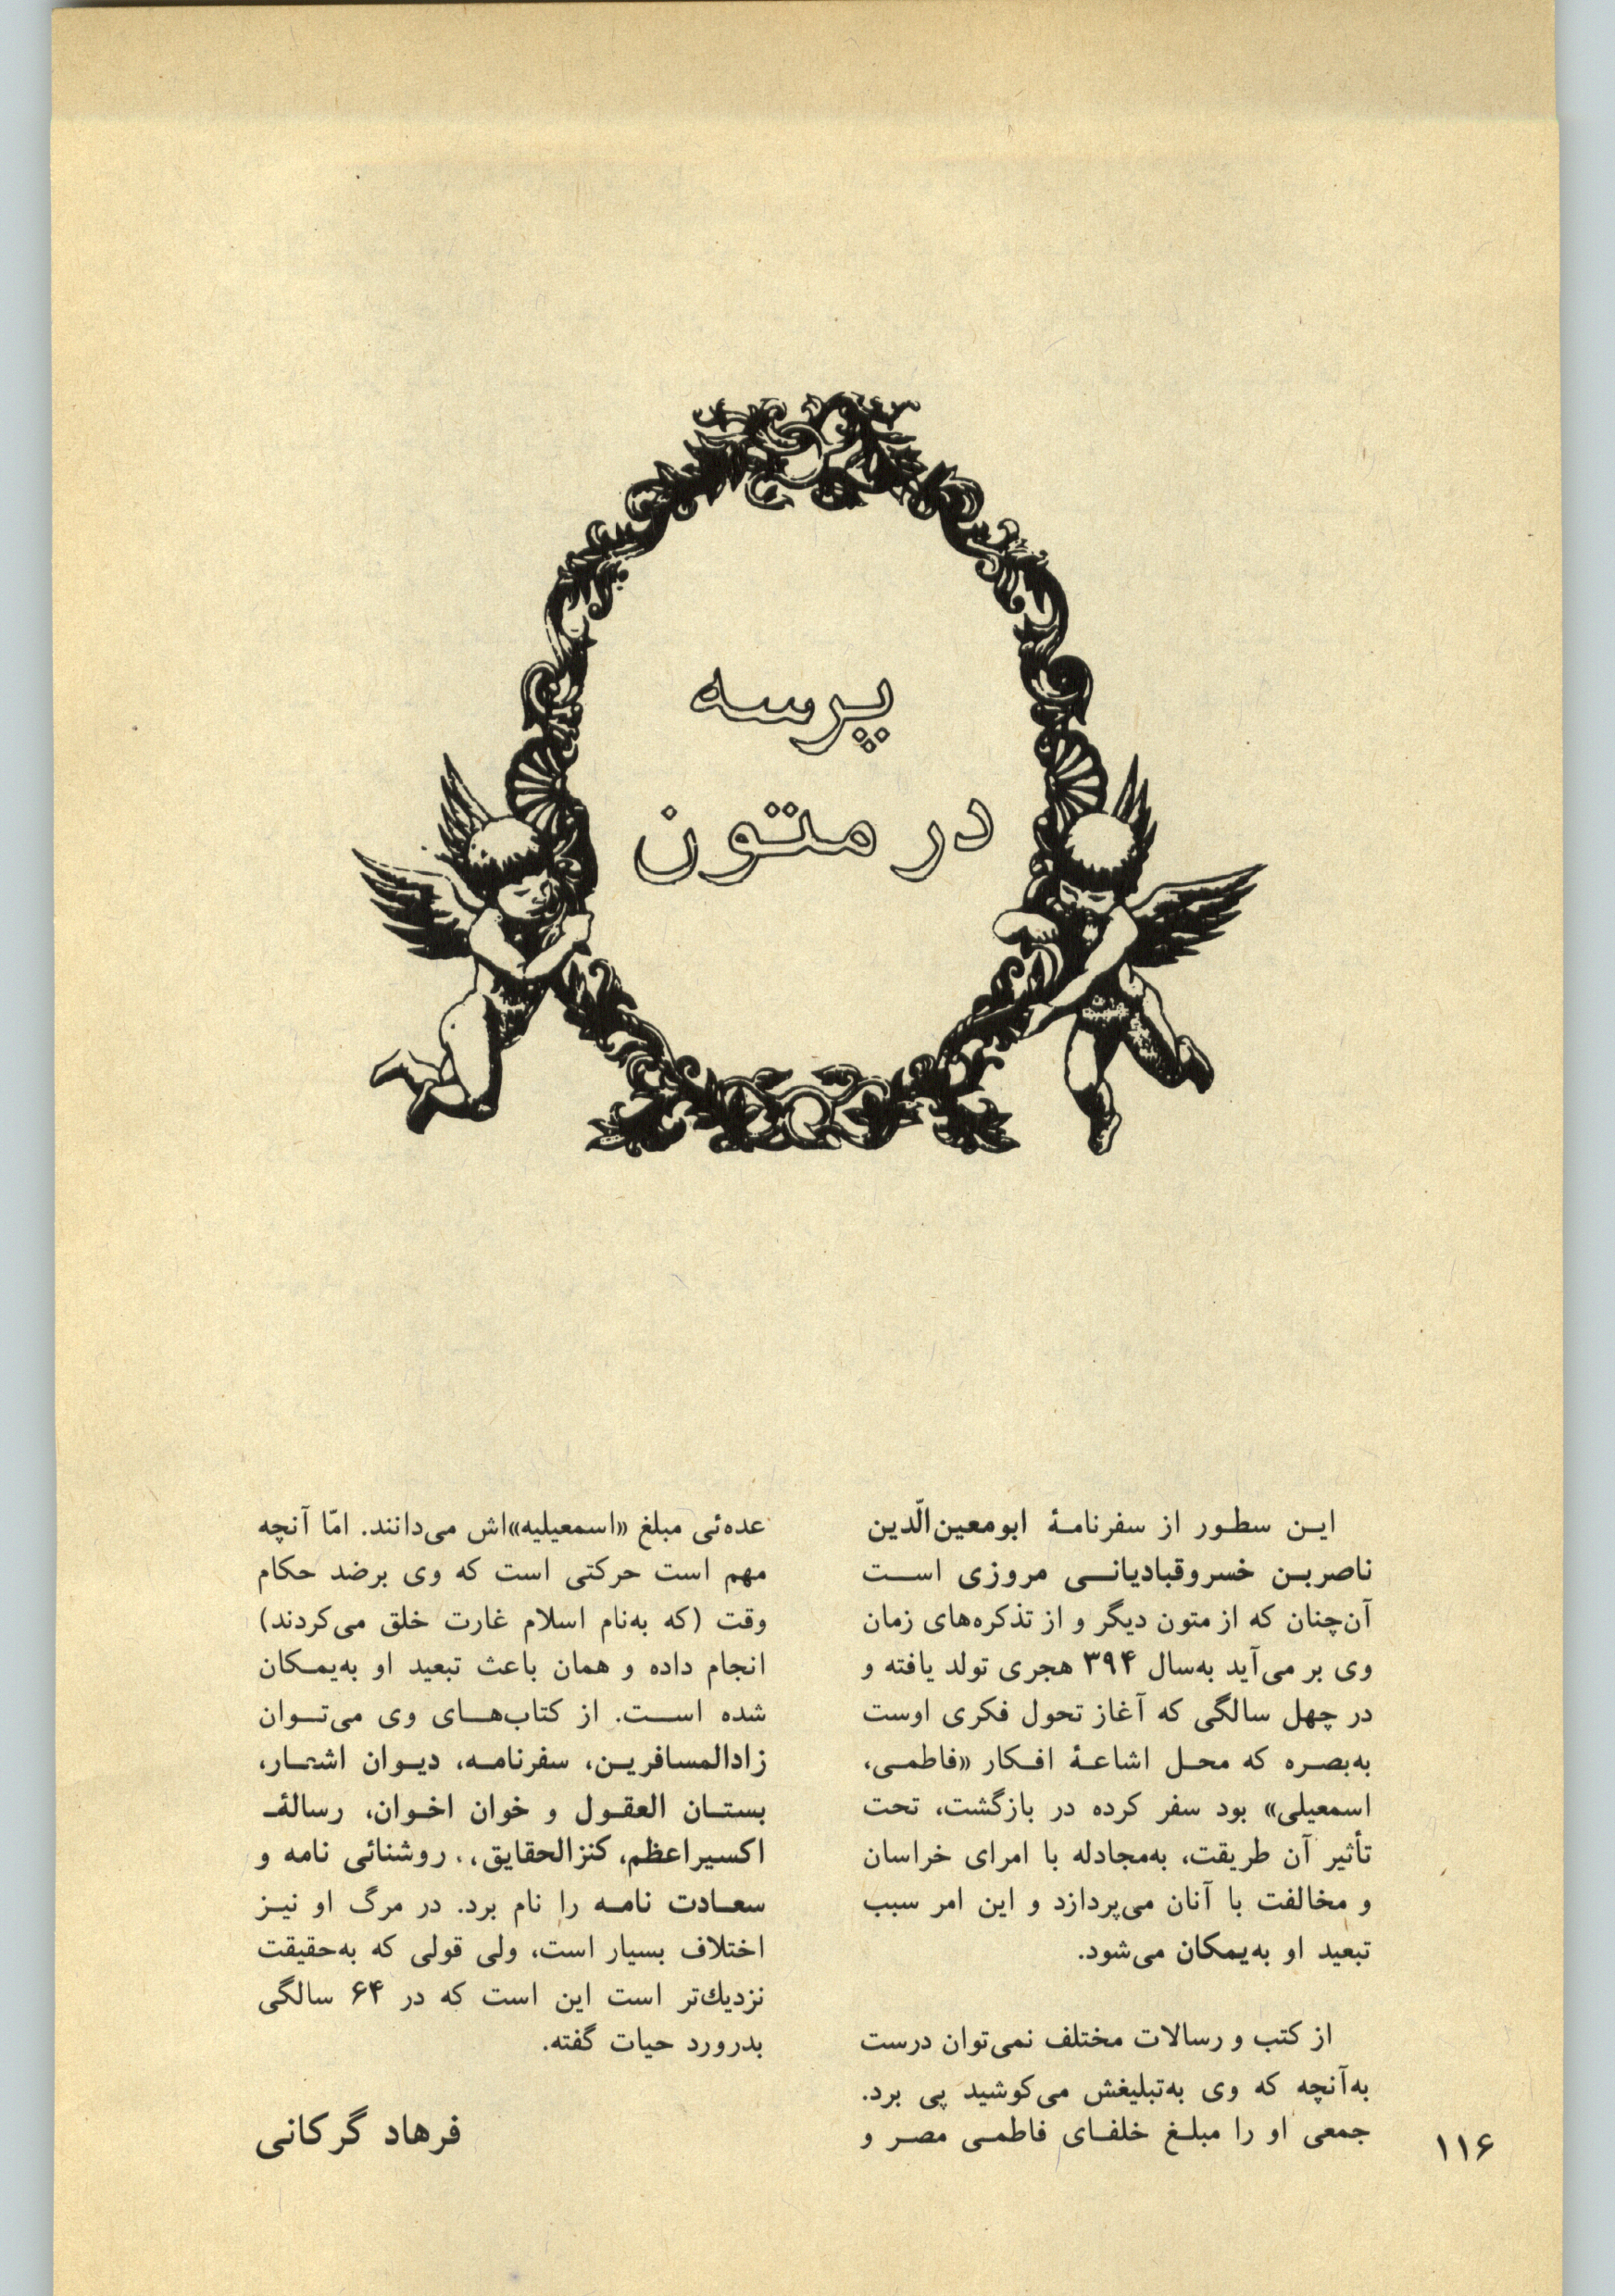 پرسه
در متون
ایـن سطـور از سفرنامـهٔ ابومعین‌الّدین
ناصربـن خسروقبادیانـی مروزی اسـت
آن‌چنان که از متون دیگر و از تذکره‌های زمان
وی بر می‌آید به‌سال ۳۹۴ هجری تولد یافته و
در چهل سالگی که آغاز تحول فکری اوست
به‌بصـره که محـل اشاعـهٔ افـکار «فاطمـی،
اسمعیلی» بود سفر کرده در بازگشت، تحت
تأثیر آن طریقت، به‌مجادله با امرای خراسان
و مخالفت با آنان می‌پردازد و این امر سبب
تبعید او به‌یمکان می‌شود.
از کتب و رسالات مختلف نمی‌توان درست
به‌آنچه که وی به‌تبلیغش می‌کوشید پی برد.
جمعی او را مبلـغ خلفـای فاطمـی مصـر و
عده‌ئی مبلغ «اسمعیلیه»‌اش می‌دانند. امّا آنچه
مهم است حرکتی است که وی برضد حکام
وقت (که به‌نام اسلام غارت خلق می‌کردند)
انجام داده و همان باعث تبعید او به‌یمـکان
شده اسـت. از کتاب‌هـای وی می‌تـوان
زادالمسافریـن، سفرنامـه، دیـوان اشعـار،
بستـان العقـول و خوان اخـوان، رسالهٔـ
اکسیراعظم، کنزالحقایق،. روشنائی نامه و
سعـادت نامـه را نام برد. در مرگ او نیـز
اختلاف بسیار است، ولی قولی که به‌حقیقت
نزدیك‌تر است این است که در ۶۴ سالگی
بدرورد حیات گفته.
فرهاد گرکانی
۱۱۶